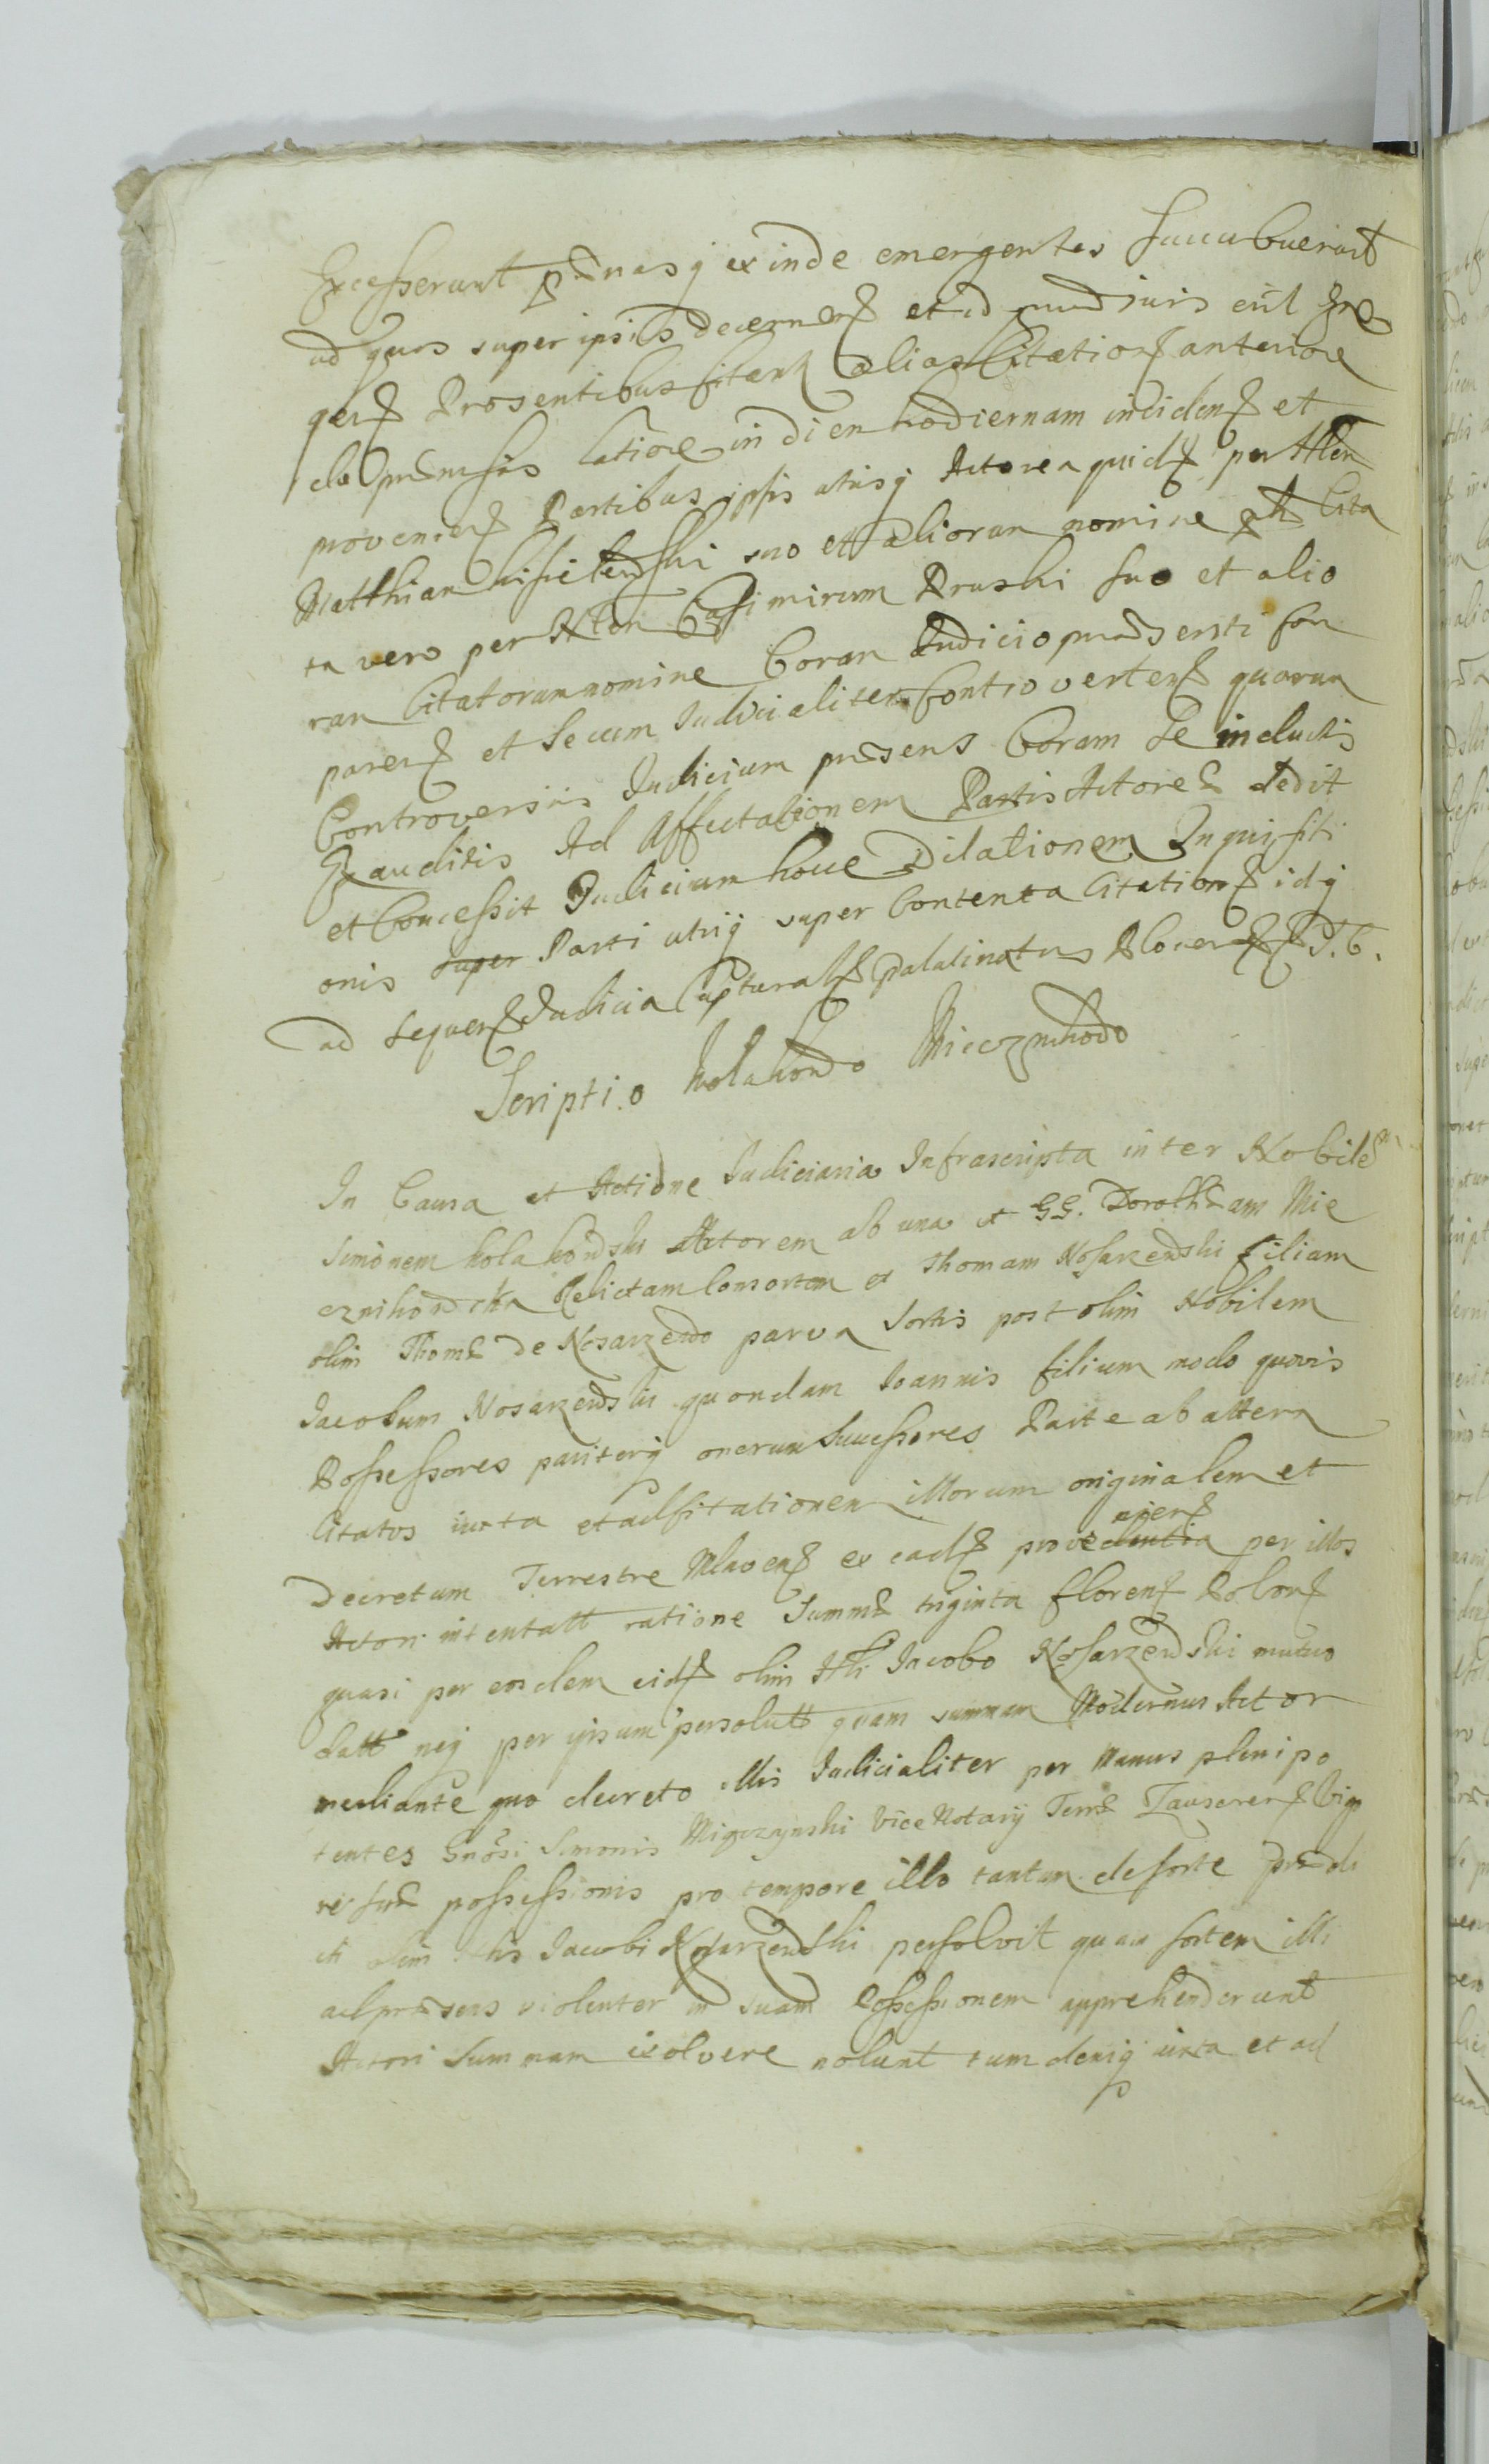 Excesserunt pænasq exinde emergentes succubuerunt
ad quas super ipsis decernen et id quod iuris erit
gen Præsentibus citant alias Citation anteriore
de præmissis latiore in diem hodiernam inciden et
provenien Partibus ipsis utrisq Actorea quid per Nlem
Matthiam suo et aliorum nomine Cita
ta vero per Nlem Casimirum Pruski suo et alio
rum Citatorum nomine Coram Iudicio præsenti Com
paren et secum Iudicialiter Controverten quarum
Controversiis Iudicium præsens Coram se inductis
Exauditis Ad Affectationem Partis Actoreæ dedit
et Concessit Iudicium hocce Dilationem Inquisiti
onis super Parti utriq super Contenta Citation idq
ad sequen Iudicia Captural Palatinatus Plocen P. T. C.
Scriptio Kolakowo Miecznikowo
In Causa et Actione Iudiciaria Infrascripta inter Nobilem
Simonem Kolakowski Actorem ab una et GG. Dorotheam Mie
cznikowska Relictam Consortem et Thomam Nosarzewski filiam
olim Thomæ de Nosarzewo parva sortis post olim Nobilem
Iacobum Nosarzewski quondam Ioannis filium modo quovis
Possessores pariterq onerum Successores Parte ab altera
Citatos iuxta et ad Citationem illorum originalem et
Decretum Terrestre Mlaven ex ead provenien per illos
Actori intentatt ratione Summæ triginta floren Polon
quasi per eosdem eid olim Nli Iacobo Nosarzewski mutuo
datt neq per ipsum persolutt quam summam Modernus Actor
mediante quo decreto illis Iudicialiter per manus plenipo
tentes Gnosi Simonis Migczynski Vice Notarij Terræ Zauscren Vigo
re suæ possessionis pro tempore illo tantum de sorte prædi
cti olim Nlis Iacobi Nosarzewski persolvit quam sortem illi
ad præsens violenter in suam Possessionem apprehenderunt
Actori Summam exolvere nolunt tum deniq iuxta et ad